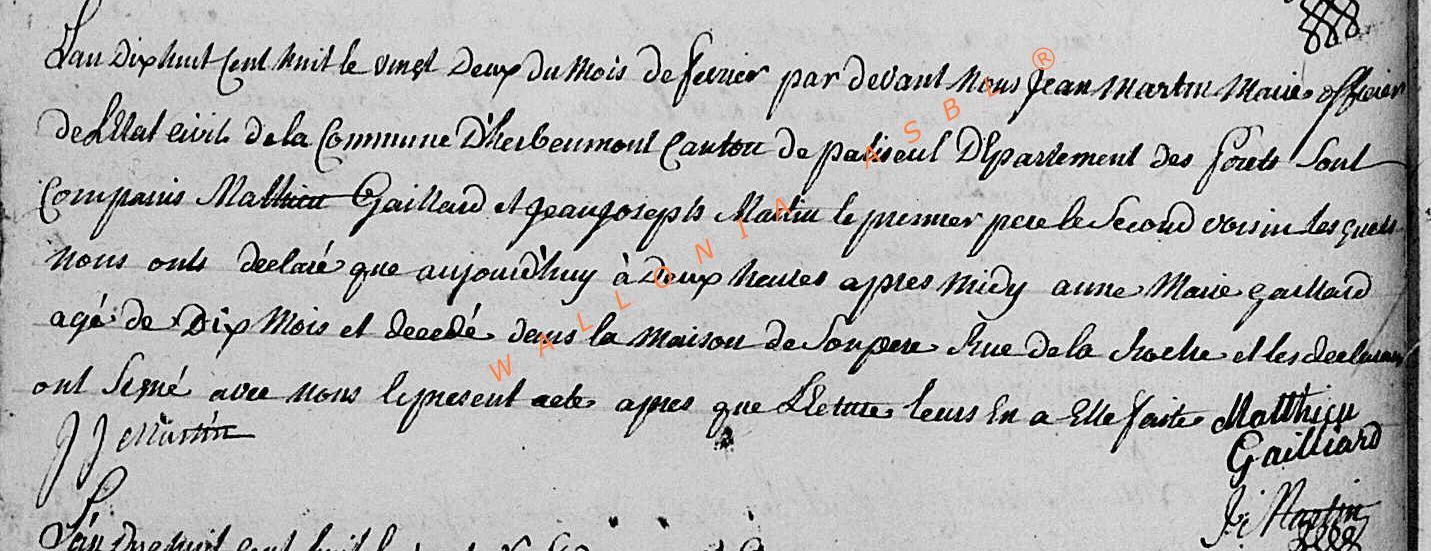 L'an Dixhuit Cent huit le vingt Deux du Mois de fevrier par devant Nous Jean Martin Maire officier
de L'Etat Civil de la Commune D'herbeumont Canton de paliseul Departement des forets Sont
Comparus Mathieu Gaillard et Jean Joseph Martin le premier pere le Second voisin lesquels
Nous onts declaré que aujourd'huy à Deux heures apres midy anne Marie gaillard
agé de Dix Mois et decedé dans la Maison de Son pere Rue de la Roche et les declarans
ont Signé avec nous le present acte apres que Lecture leurs En a Etté faite Matthieu
Gailliard
J J Martin
J: Martin
L'an Dixhuit Cent huit le
WALLONIA ASBL ®